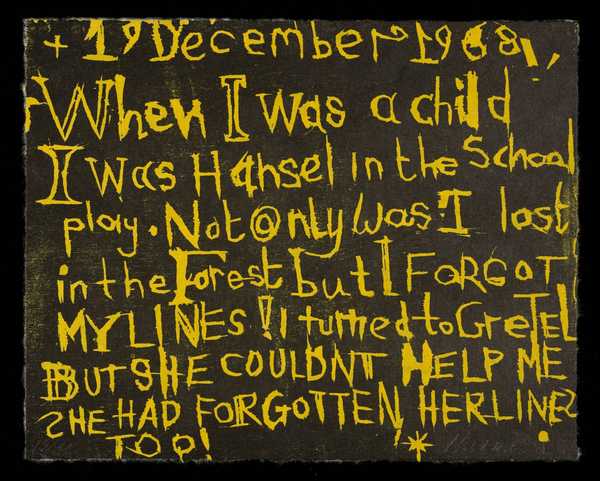 + 19 December 1968
When I was a child
I was Hansel in the School
play. Not only was I lost
in the Forest but I FORGOT
MY LINES! I turned to GreTEL
BUT SHE COULDNT HELP ME
SHE HAD FORGOTTEN HER LINES
TOO!